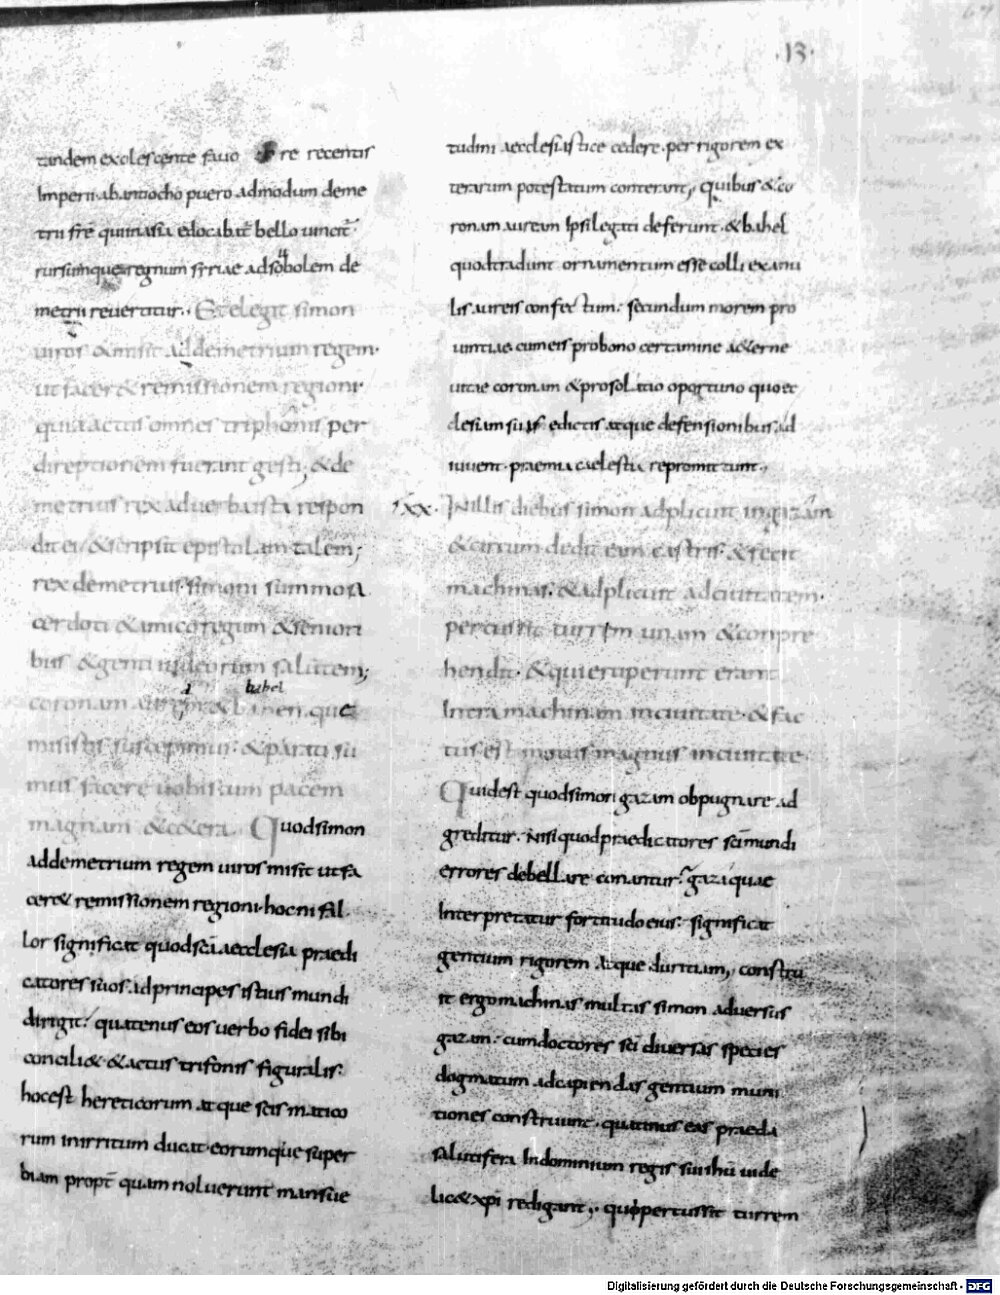 ·13·
tandem exolescente favo re recentis
Imperii ab antiocho puero admodum deme
trii fr̄e quinasia edocabat̄ bello vincit̄
rursumque regnum syriae ad sobolem de
metrii revertitur. Et elegit simon
viros & misit ad demetrium regem·
ut facer& remissionem regioni·
quia actus omnes triphonis per
direptionem fuerant gesti; & de
metrius rex ad verba ista respon
dit ei/ & scripsit epistolam talem;
rex demetrius simoni summo sa
cerdoti & amico regum & seniori
bus & genti iudeorum salutem;
a babel
coronam auream & bahen. quā
misistis suscepimus: & parati su
mus facere vobiscum pacem
magnam & cetera. Quod simon
ad demetrium regem viros misit ut fa
cer& remissionem regioni· hoc ni fal
lor significat quod sc̄i aecclesia praedi
catores suos ad principes istius mundi
dirigit/ quatenus eos verbo fidei sibi
concili& & actus trifonis figuralis:
hoc est hereticorum atque scismatico
rum in irritum ducat· eorumque super
biam propt̄ quam noluerunt mansue
tudini aecclesiastice cedere. per rigorem ex
terarum potestatum conterant, quibus & co
ronam auream Ipsi legati deferunt· & bahel
quod tradunt ornamentum esse colli ex anu
lis aureis confectum: secundum morem pro
vintiae cum eis pro bono certamine a& erne
vitae coronam & pro solatio oportuno quo ec
clesiam suis edictis atque defensionibus ad
iuvent· praemia caelestia repromittunt,
LXX. In illis diebus simon adplicuit in gazam
& circum dedit eam castris· & fecit
machinas. & adplicuit ad civitatem·
percussit turrem unam & conpre
hendit· & qui eruperunt erant
Intra machinam in civitate· & fac
tus est motus magnus in civitate
Quid est quod simon gazam obpugnare ad
greditur. Nisi quod praedicatores sc̄i mundi
errores debellare conantur: gaza quae
Interpretatur fortitudo eius: significat
gentium rigorem atque duritiam, constru
it ergo machinas multas simon adversus
gazam: cum doctores sc̄i diversas species
dogmatum ad capiendas gentium muni
tiones construunt. quatinus eas praeda
salutifera In dominium regis sui ih̄u vide
lic& xp̄i redigant,· quod percussit turrem
Digitalisierung gefördert durch die Deutsche Forschungsgemeinschaft - DFG